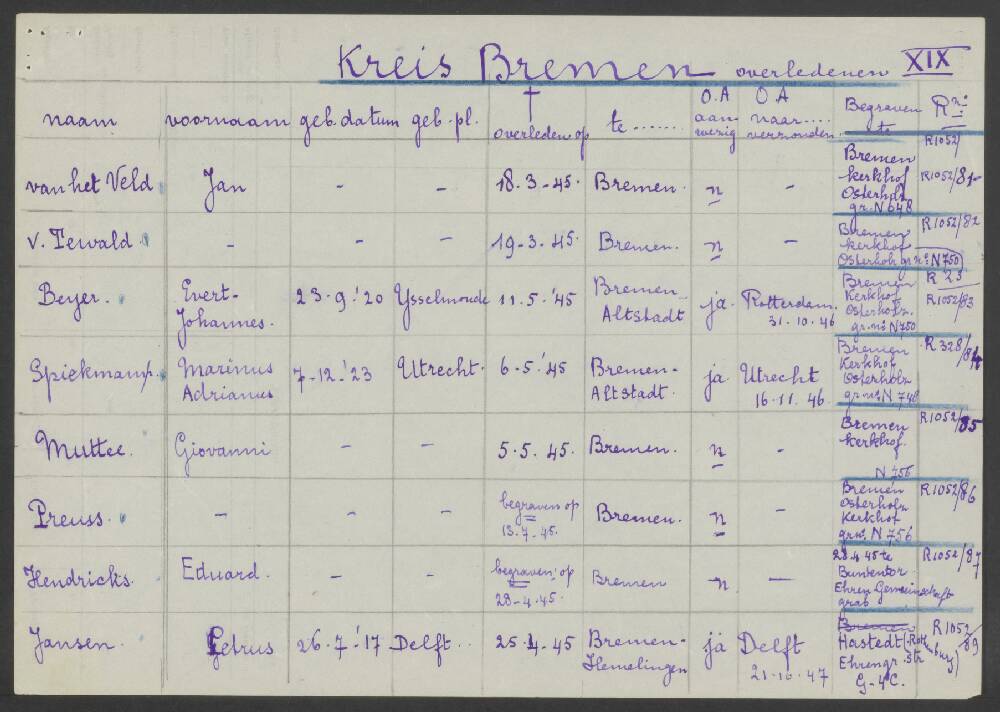 Kreis Bremen overledenen XIX
naam voornaam geb.datum geb.pl. † overleden op te ....... O.A aanwezig O A naar .... verzonden Begraven te R no
R1052/
van het Veld Jan - - 18.3.-45. Bremen. n -
Bremen
kerkhof
Osterholz
gr. N 648
R1052/81
v. Tewald - - - 19-3.-45. Bremen. n -
Bremen
kerkhof
Osterholz gr no N 750
R1052/82
Beyer. Evert-
Johannes.
23-9.'20 Ysselmonde 11.5.'45
Bremen-
Altstadt
ja
Rotterdam.
31.10.46
Bremen
Kerkhof
Osterholz.
gr.no N 750
R 23
R1052/83
Spiekmann Marinus
Adrianus
7-12.-'23 Utrecht. 6-5.'45
Bremen-
Altstadt.
ja
Utrecht
16.11.46.
Bremen
Kerkhof
Osterholz
gr no N 748
R 328/84
Muttee. Giovanni - - 5.5. 45. Bremen. n -
Bremen
kerkhof.
N 755
R1052/85
Preuss. - - -
begraven op
13.7.45.
Bremen. n -
Bremen
Osterholz
Kerkhof
gr no. N 756
R1052/86
Hendricks. Eduard. - -
begraven op
28-4.45.
Bremen n -
28.4.45 te
Buntentor
Ehren Gemeinschaft
grab
R1052/87
Jansen. Petrus 26.7-'17 Delft.. 25.4.45
Bremen-
Hemelingen
ja
Delft
21-10.'47
Bremen
Hastedt (Rothenburg
str)
Ehrengr
G-4C.
R1052/89